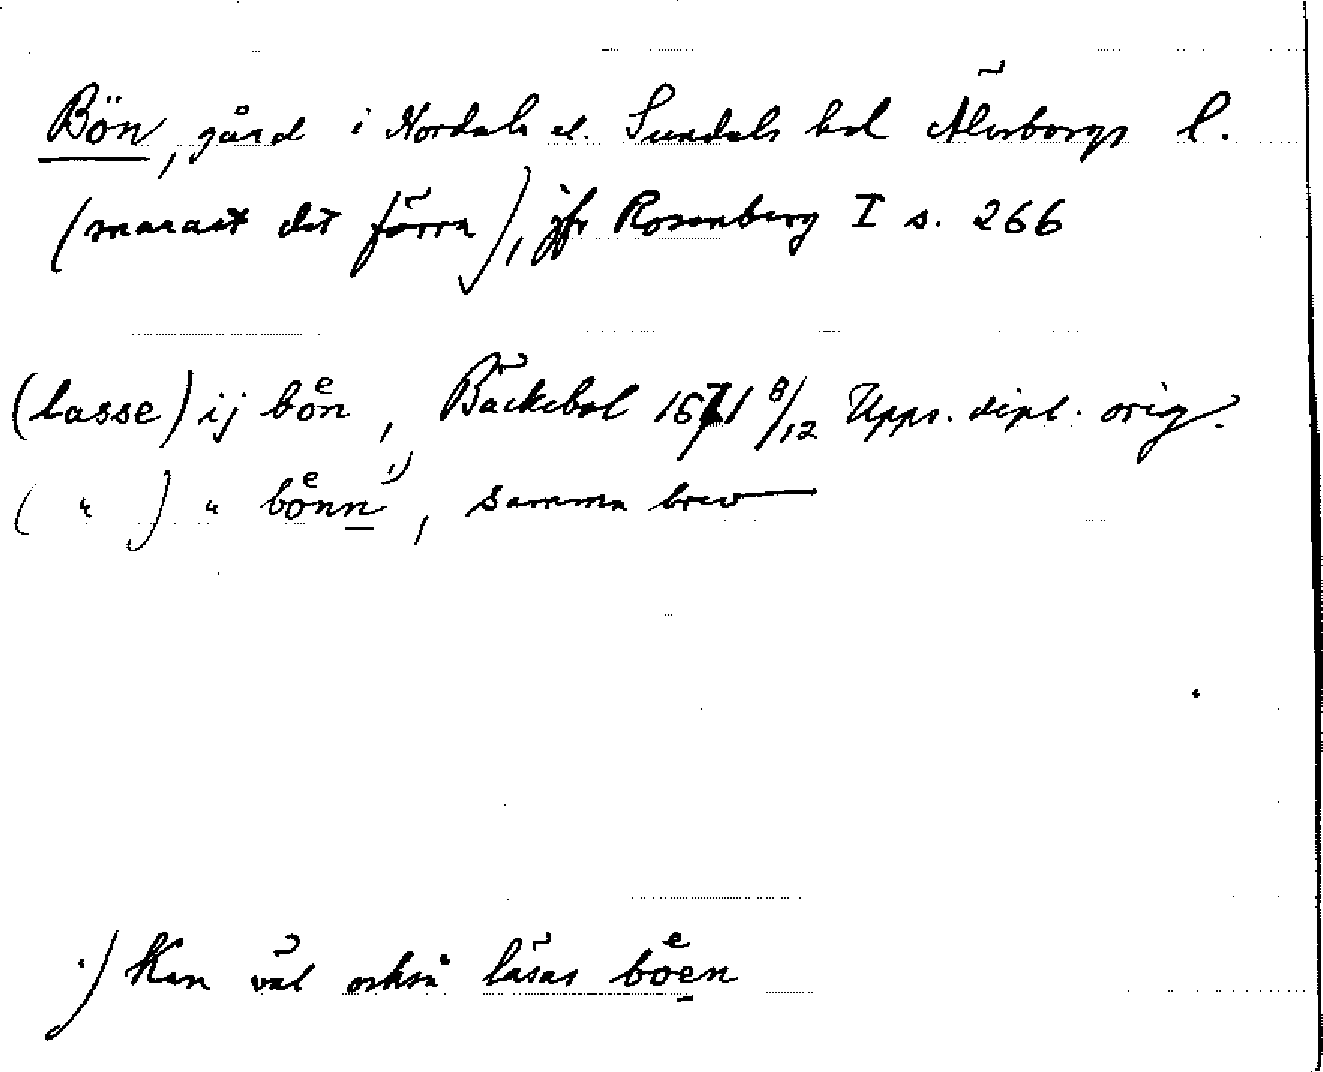 Bön, gård i Nordals el. Sundals hd Älvsborgs l.
(snarast det förra), jfr Rosenberg I s. 266
(lasse) ij boͤn, Bäckebol 1571 8/12 Upps. dipl. orig.
( " ) " boͤnn 1), samma brev
1) Kan väl också läsas boͤen